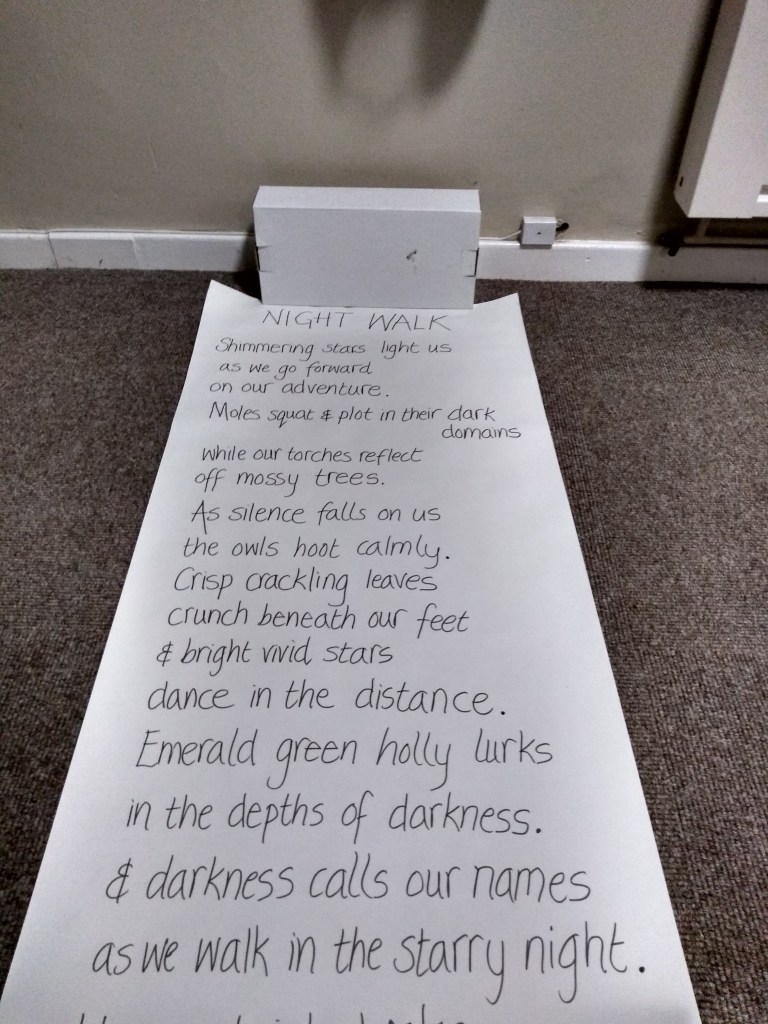 NIGHT WALK
Shimmering stars light us
as we go forward
on our adventure.
Moles squat & plot in their dark
domains
while our torches reflect
off mossy trees.
As silence falls on us
the owls hoot calmly.
Crisp crackling leaves
crunch beneath our feet
& bright vivid stars
dance in the distance.
Emerald green holly lurks
in the depths of darkness.
& darkness calls our names
as we walk in the starry night.